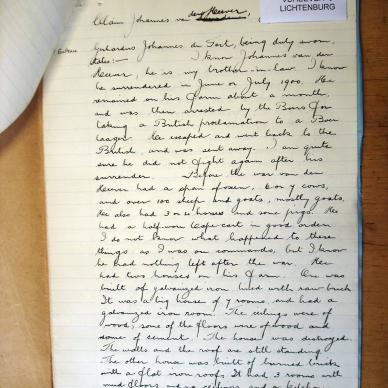 LICHTENBURG
Claim Johannes van den Heever,
Gerhardus Johannes du Tort, being duly sworn,
states :- I know Johannes van den
Heever, he is my brother-in-law. I know
he surrendered in June or July 1900. He
remained on his farm about a month,
and was then arrested by the Boers for
taking a British proclamation to a Boer
laager. He escaped and went back to the
British, and was sent away. I am quite
sure he did not fight again after his
surrender. Before the war van den
Heever had a span of oxen, 6 or 7 cows,
and over 100 sheep and goats, mostly goats.
He also had 3 or 4 horses and some pigs. He
had a half-worn Cape-cart in good order.
I do not know what happened to these
things as I was on commando, but I know
he had nothing left after the war. He
had two houses on his farm. One was
built of galvanized iron lined with raw brick.
It was a big house of 7 rooms, and had a
galvanized iron roof. The ceilings were of
wood; some of the floors were of wood and
some of cement. The house was destroyed.
The walls and the roof are still standing.
The other house was built of burned brick
with a flat iron roof. It had 3 rooms with
mud floors and no ceilings and a kitchen